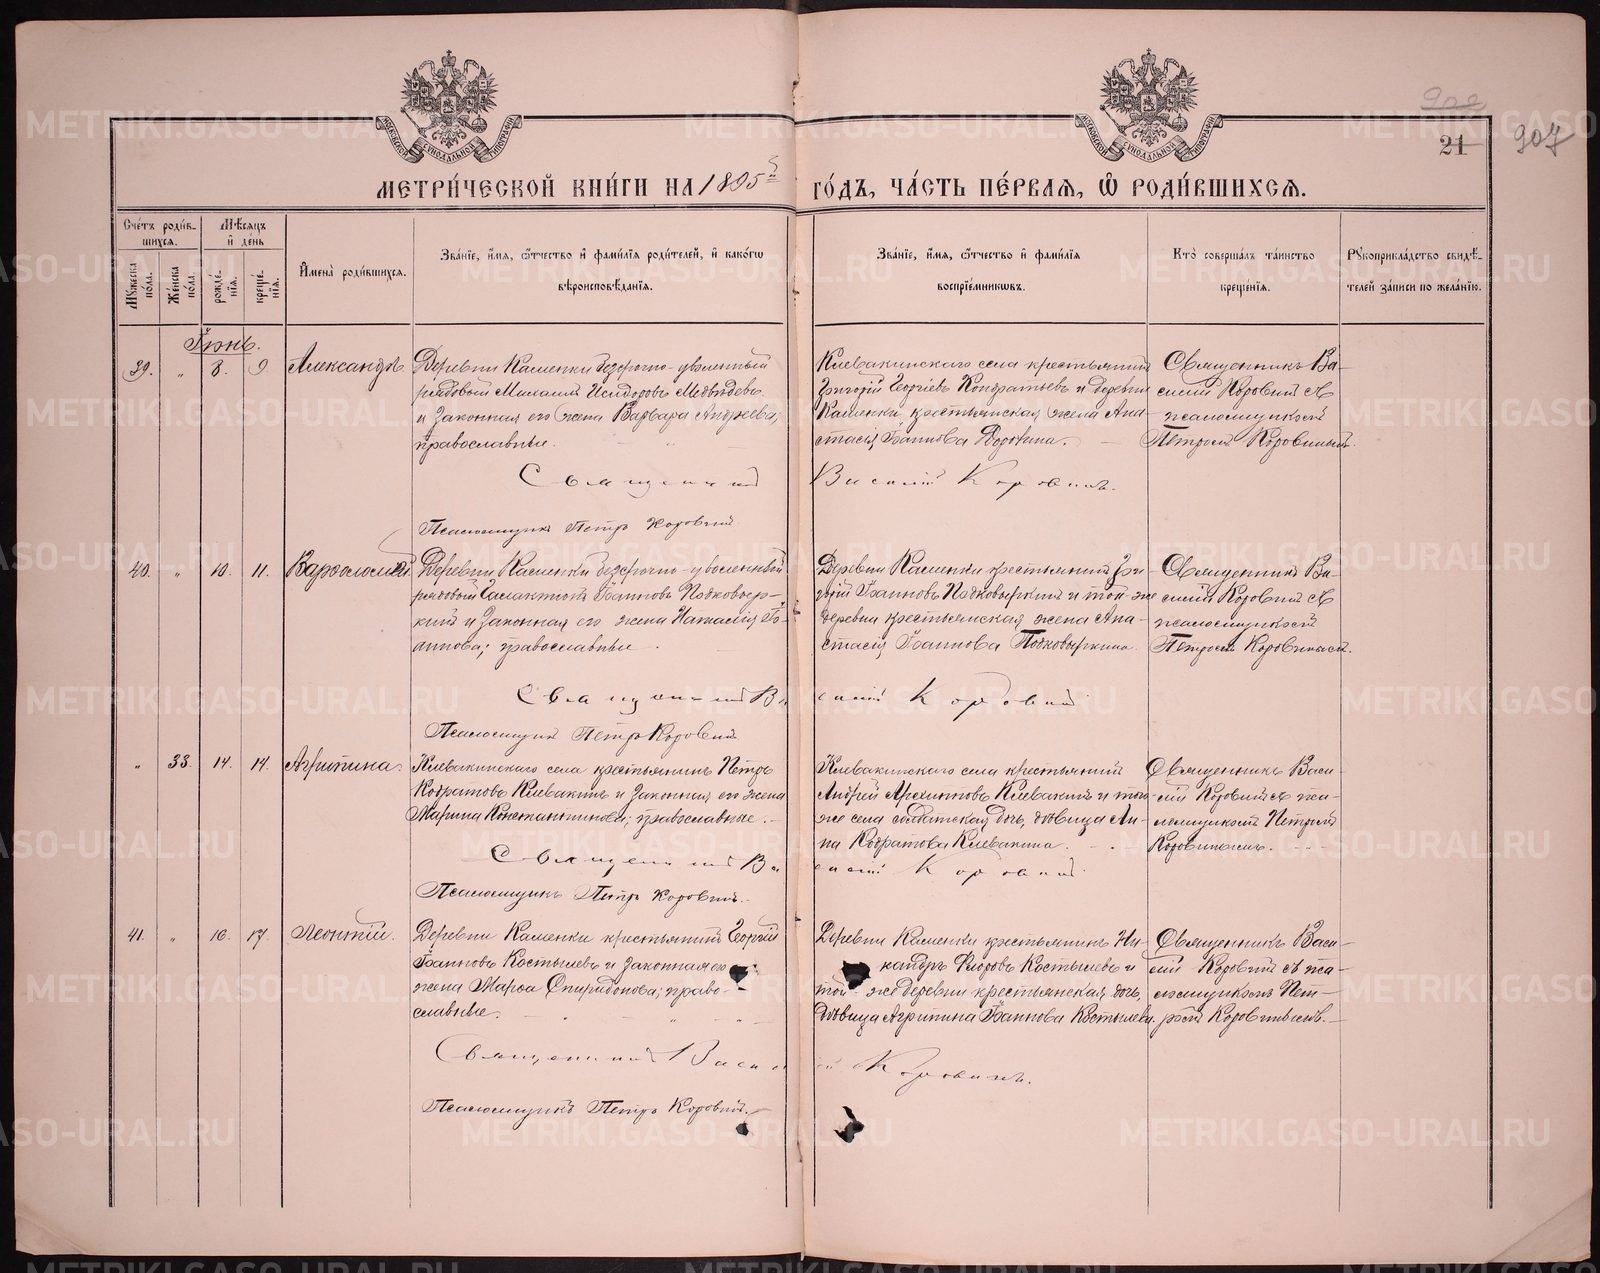 МОСКОВСКОЙ СѴНОДАЛЬНОЙ ТИПОГРАФІИ
МОСКОВСКОЙ СѴНОДАЛЬНОЙ ТИПОГРАФІИ
21
907
МЕТРИ́ЧЕСКОЙ КНИ́ГИ НА 1895й ГО́ДЪ, ЧА́СТЬ ПЕ́РВАЯ, Ѡ РОДИ́ВШИХСѦ.
Сче́тъ роди́в-
шихся.
Мѣ́сяцъ
и҆ де́нь
Мꙋ́жеска по́ла.
Же́нска по́ла.
рожде́-нїѧ.
креще́-нїѧ.
И҆мена̀ роди́вшихся.
Зва́нїе, и҆́мя, ѻ҆́тчество и҆ фами́лїѧ роди́телей, и҆ како́гѡ
вѣроисповѣ́данїѧ.
Зва́нїе, и҆́мя, ѻ҆́тчество и҆ фами́лїѧ
воспрїе́мникѡвъ.
Кто̀ соверша́лъ та́инство
креще́нїѧ.
Рꙋкоприкла́дство свидѣ́-
телей за́писи по жела́нїю.
Іюнь.
39. „ 8. 9. Александръ.
Деревни Каменки безсрочно-уволенный
рядовой Михаилъ Исидоровъ Медвѣдевъ
и законная его жена Варвара Андреева,
православные.
Клевакинскаго села крестьянинъ
Григорій Георгіевъ Кондратьевъ и деревни
Каменки крестьянская жена Ана-
стасія Іоаннова
Священникъ Ва-
силій Коровинъ съ
псаломщикомъ
Петромъ Коровинымъ.
Священникъ Василій Коровинъ.
Псаломщикъ Петръ Коровинъ.
40. „ 10. 11. Варѳоломей.
Деревни Каменки безсрочно-уволенный
рядовой Галактіонъ Іоанновъ Подковыр-
кинъ и законная его жена Наталія Іо-
аннова; православные.
Деревни Каменки крестьянинъ Гри-
горій Іоанновъ Подковыркинъ и той-же
деревни крестьянская жена Ана-
стасія Іоаннова Подковыркина.
Священникъ Ва-
силій Коровинъ съ
псаломщикомъ
Петромъ Коровинымъ.
Священникъ Василій Коровинъ
Псаломщикъ Петръ Коровинъ.
„ 33. 14. 14. Агрипина.
Клевакинскаго села крестьянинъ Петръ
Кодратовъ Клевакинъ и законная его жена
Марина Константинова; православные.
Клевакинскаго села крестьянинъ
Андрей Архиповъ Клевакинъ и того-
же села солдатская дочь, дѣвица Ан-
на Кодратова Клевакина.
Священникъ Васи-
лій Коровинъ съ пса-
ломщикомъ Петромъ
Коровинымъ.
Священникъ Василій Коровинъ
Псаломщикъ Петръ Коровинъ.
41. „ 16. 17. Леонтій.
Деревни Каменки крестьянинъ Георгій
Іоанновъ Костылевъ и законная его
жена Марѳа Спиридонова; право-
славные.
Деревни Каменки крестьянинъ Ни-
кандръ Флоровъ Костылевъ и
той-же деревни крестьянская дочь,
дѣвица Агрипина Іоаннова Костылева.
Священникъ Васи-
лій Коровинъ съ пса-
ломщикомъ Пет-
ромъ Коровинымъ.
Священникъ Василій Коровинъ.
Псаломщикъ Петръ Коровинъ.
METRIKI.GASO-URAL.RU